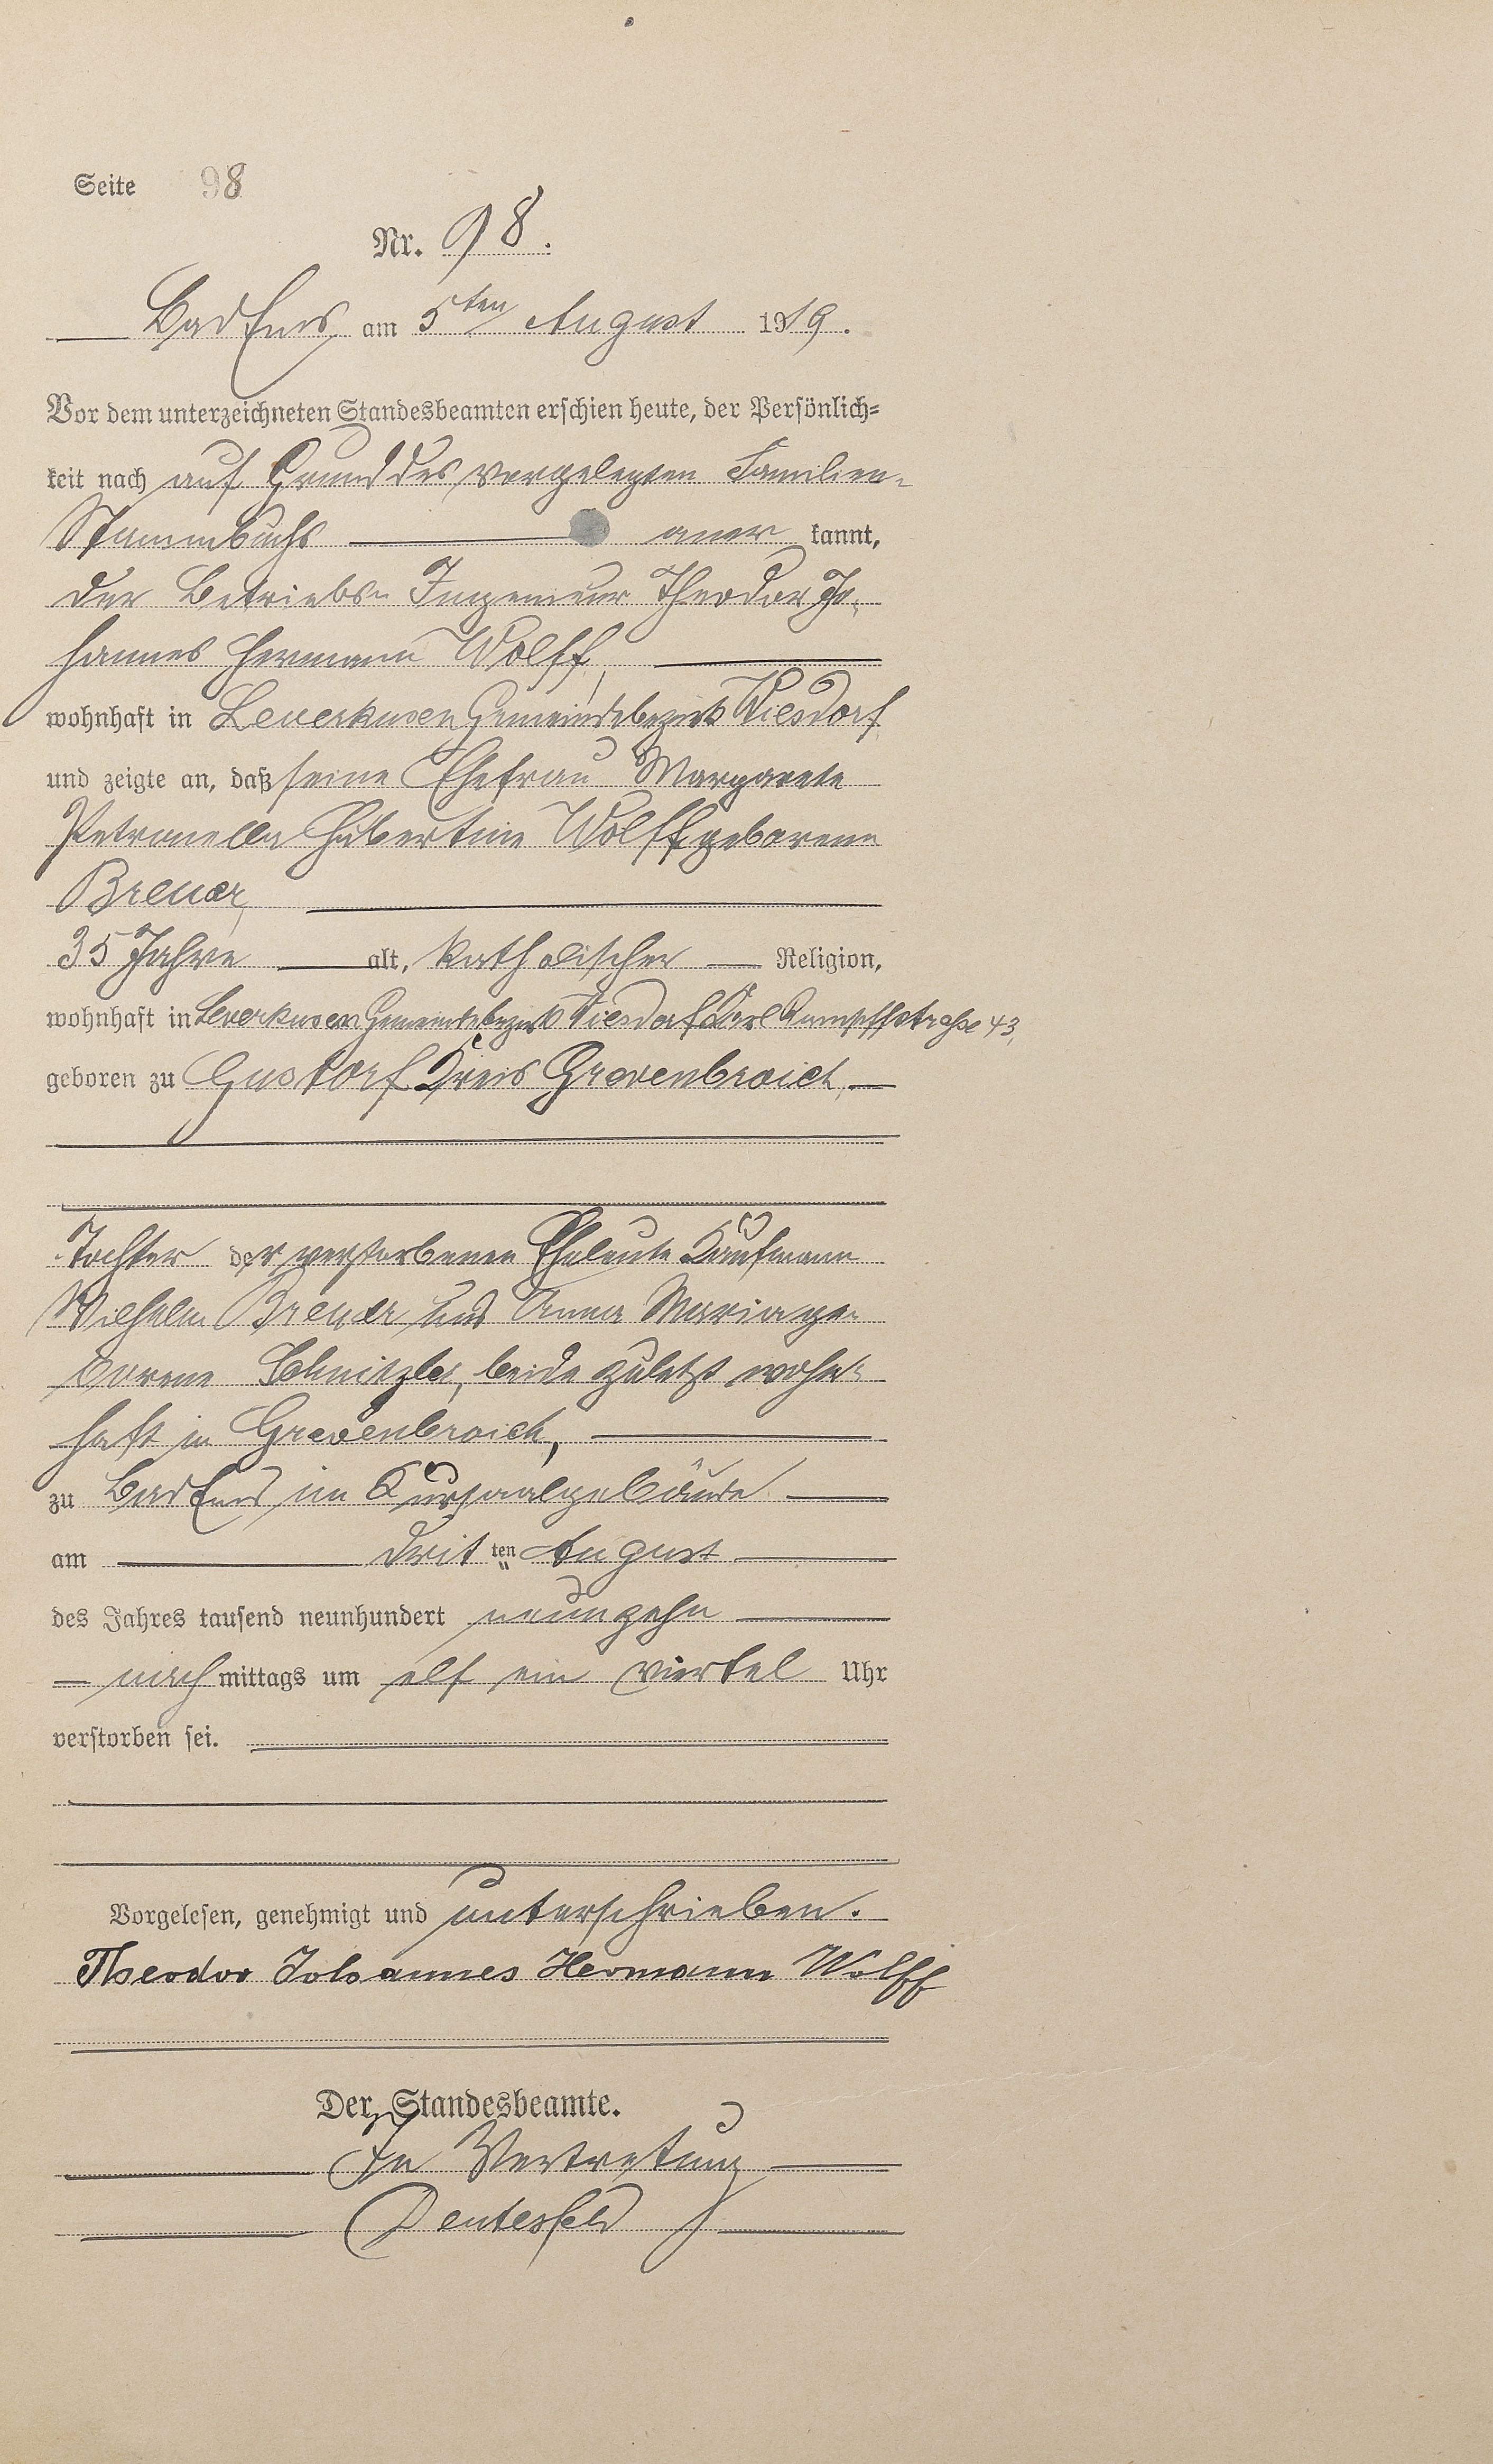 Seite 98
Nr. 98.
Bad Ems, am 5ten August 1919.
Vor dem unterzeichneten Standesbeamten erschien heute, der Persönlich=
keit nach auf Grund des vorgelegten Familien-
Stammbuchs aner kannt,
der Betriebs-Ingenieur Theodor Jo-
hannes Hermann Wolff,
wohnhaft in Leverkusen Gemeindebezirk Wiesdorf
und zeigte an, daß seine Ehefrau Margarete
Petronella Hubertine Wolff geborene
Breuer,
35 Jahre alt, katholischer Religion,
wohnhaft in Leverkusen Gemeindebezirk Wiesdorf Karl 43,
geboren zu Gustorf Kreis Grevenbroich,
Tochter der verstorbenen Eheleute Kaufmann
Wilhelm Breuer und Anna Maria ge-
borene Schnitzler, beide zuletzt wohn-
haft in Grevenbroich,
zu Bad Ems im Kursaalgebäude
am drit ten August
des Jahres tausend neunhundert neunzehn
nach mittags um elf ein viertel Uhr
verstorben sei.
Vorgelesen, genehmigt und unterschrieben.
Theodor Johannes Hermann Wolff
Der Standesbeamte.
In Vertretung